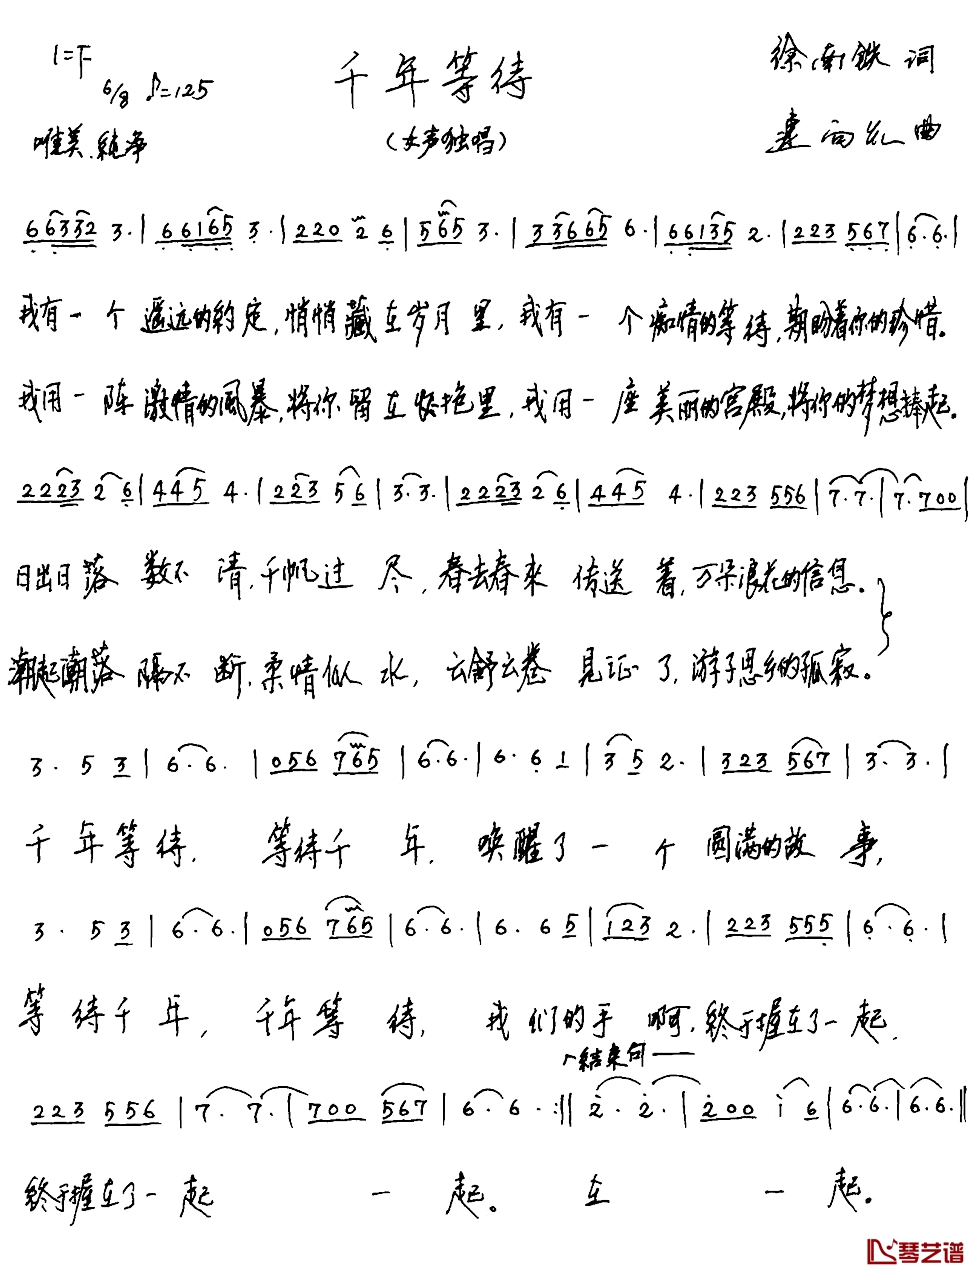 1=F
6/8 ♪=125
千年等待
徐南铁 词
唯美、纯净
(女声独唱)
连向红 曲
6 6 3 3 2 3· | 6 6 1 6 5 3· | 2 2 0 2 6 | 5 6 5 3· | 3 3 6 6 5 6· | 6 6 1 3 5 2· | 2 2 3 5 6 7 | 6· 6· |
我有一个遥远的约定,悄悄藏在岁月里,我有一个痴情的等待,期盼着你的珍惜。
我用一阵激情的风暴,将你留在怀抱里,我用一座美丽的宫殿,将你的梦想捧起。
2 2 2 3 2 6 | 4 4 5 4· | 2 2 3 5 6 | 3· 3· | 2 2 2 3 2 6 | 4 4 5 4· | 2 2 3 5 5 6 | 7· 7· | 7· 7 0 0 |
日出日落数不清,千帆过尽,春去春来传送着,万朵浪花的信息。
潮起潮落隔不断,柔情似水,云舒云卷见证了,游子思乡的孤寂。
3· 5 3 | 6· 6· | 0 5 6 7 6 5 | 6· 6· | 6· 6 1 | 3 5 2· | 3 2 3 5 6 7 | 3· 3· |
千年等待,等待千年,唤醒了一个圆满的故事,
3· 5 3 | 6· 6· | 0 5 6 7 6 5 | 6· 6· | 6· 6 5 | 1 2 3 2· | 2 2 3 5 5 5 | 6· 6· |
等待千年,千年等待,我们的手啊,终于握在了一起.
结束句
2 2 3 5 5 6 | 7· 7· | 7 0 0 5 6 7 | 6· 6· :|| 2· 2· | 2 0 0 1 6 | 6· 6· | 6· 6· ||
终于握在了一起一起。在一起。
琴艺谱